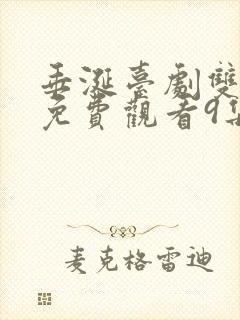 垂涎臺劇雙
免費觀看9集
麥克格雷迪